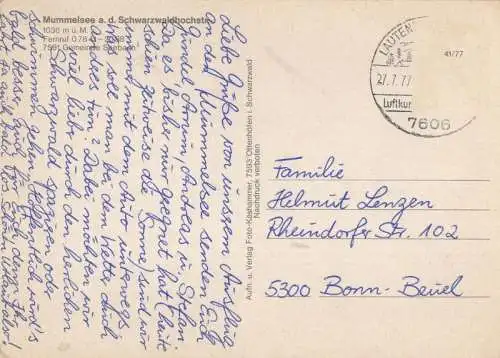 Mummelsee a. d. Schwarzwaldhochstr.
1036 m ü. M.
7591 Gemeinde Seebach
Liebe Grüße von unserem Ausflug
an den Mummelsee senden Euch
Gundi, Armin, Andreas u. Stefan
Da es bisher nur geregnet hat (heute
schien zeitweise die Sonne) sind wir
immer mit dem Auto unterwegs
was soll man bei dem Wetter auch
anderes tun? Dabei möchten wir
viel lieber durch den herrlichen
Schwarzwald spazieren oder
schwimmen gehen. Hoffentlich wird's
bald besser.
Aufn. u. Verlag Foto-Käshammer, 7593 Ottenhöfen i. Schwarzwald
Nachdruck verboten
LAUTEN
27.7.77
Luftkur
7606
41/77
Familie
Helmut Lenzen
Rheindorfer Str. 102
5300 Bonn-Beuel